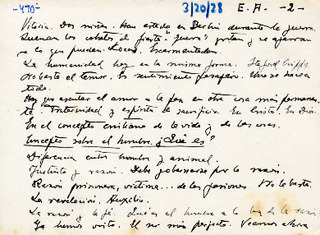 -470- 3/20/28 E. A. -2-
Vitoria. Dos niños. Han estado en Berlín durante la guerra.
Suenan los cohetes de fiesta "guerra" gritan y se agarran
a lo que pueden. Locos. Escarmentados.
La humanidad hoy en la misma forma. Stafford Cripps.
No basta el temor. Es sentimiento pasajero. Uno se hace a
todo.
Hay que asentar el amor a la paz en otra cosa más permanen-
te. Fraternidad y espíritu de sacrificio. En Cristo. En Dios.
En el concepto cristiano de la vida y de las cosas.
Concepto sobre el hombre. ¿Qué es?
Diferencia entre hombre y animal.
Instinto y razón. Debe gobernarse por la razón.
Razón prisionera, víctima... de las pasiones. No le basta.
La revelación. Auxilio.
La razón y la fe. al hombre a la luz de la razón
Ya hemos visto. El ser más perfecto. Veamos ahora